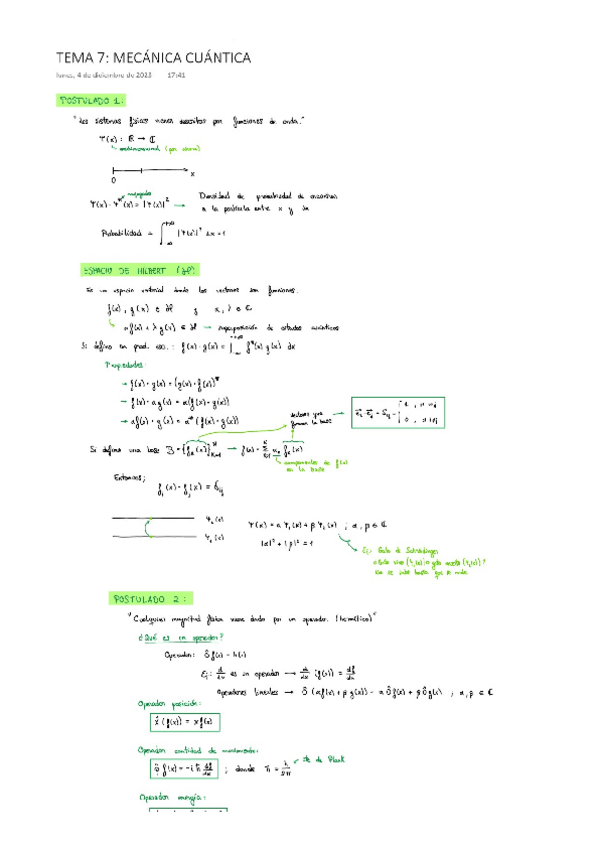 TEMA 7: MECÁNICA CUÁNTICA
lunes, 4 de diciembre de 2023 17:41
POSTULADO 1:
"Los sistemas físicos vienen descritos por funciones de onda."
Ψ(x): ℝ → ℂ
unidimensional (por ahora)
0 x
conjugado
Ψ(x) · Ψ*(x) = |Ψ(x)|² → Densidad de probabilidad de encontrar
a la partícula entre x y dx
Probabilidad = ∫ |Ψ(x)|² dx = 1
ESPACIO DE HILBERT (ℋ)
Es un espacio vectorial donde los vectores son funciones.
f(x), g(x) ∈ ℋ y α, λ ∈ ℂ
α f(x) + λ g(x) ∈ ℋ → superposición de estados cuánticos
Si defino un prod. esc.: f(x) · g(x) = ∫ f*(x) g(x) dx
Propiedades:
→ f(x) · g(x) = (g(x) · f(x))*
→ f(x) · α g(x) = α (f(x) · g(x))
→ α f(x) · g(x) = α* (f(x) · g(x))
vectores que
forman la base
Si defino una base B = {fₖ(x)} → f(x) = Σ αₖ fₖ(x)
componentes de f(x)
en la base
Entonces;
fᵢ(x) · fⱼ(x) = δᵢⱼ
Ψ₂(x)
Ψ₁(x)
Ψ(x) = α Ψ₁(x) + β Ψ₂(x) ; α, β ∈ ℂ
|α|² + |β|² = 1
Ej: Gato de Schrödinger
no se sabe hasta que se mide
POSTULADO 2:
"Cualquier magnitud física viene dada por un operador. (hermítico)"
¿Qué es un operador?
Operador: Ô f(x) = h(x)
Ej: d/dx es un operador → d/dx (f(x)) = df/dx
Operadores lineales → Ô (α f(x) + β g(x)) = α Ô f(x) + β Ô g(x) ; α, β ∈ ℂ
Operador posición:
x̂ (f(x)) = x f(x)
Operador cantidad de movimiento:
p̂ f(x) = -i ħ df/dx ; donde ħ = h/2π
cte de Plank
Operador energía: